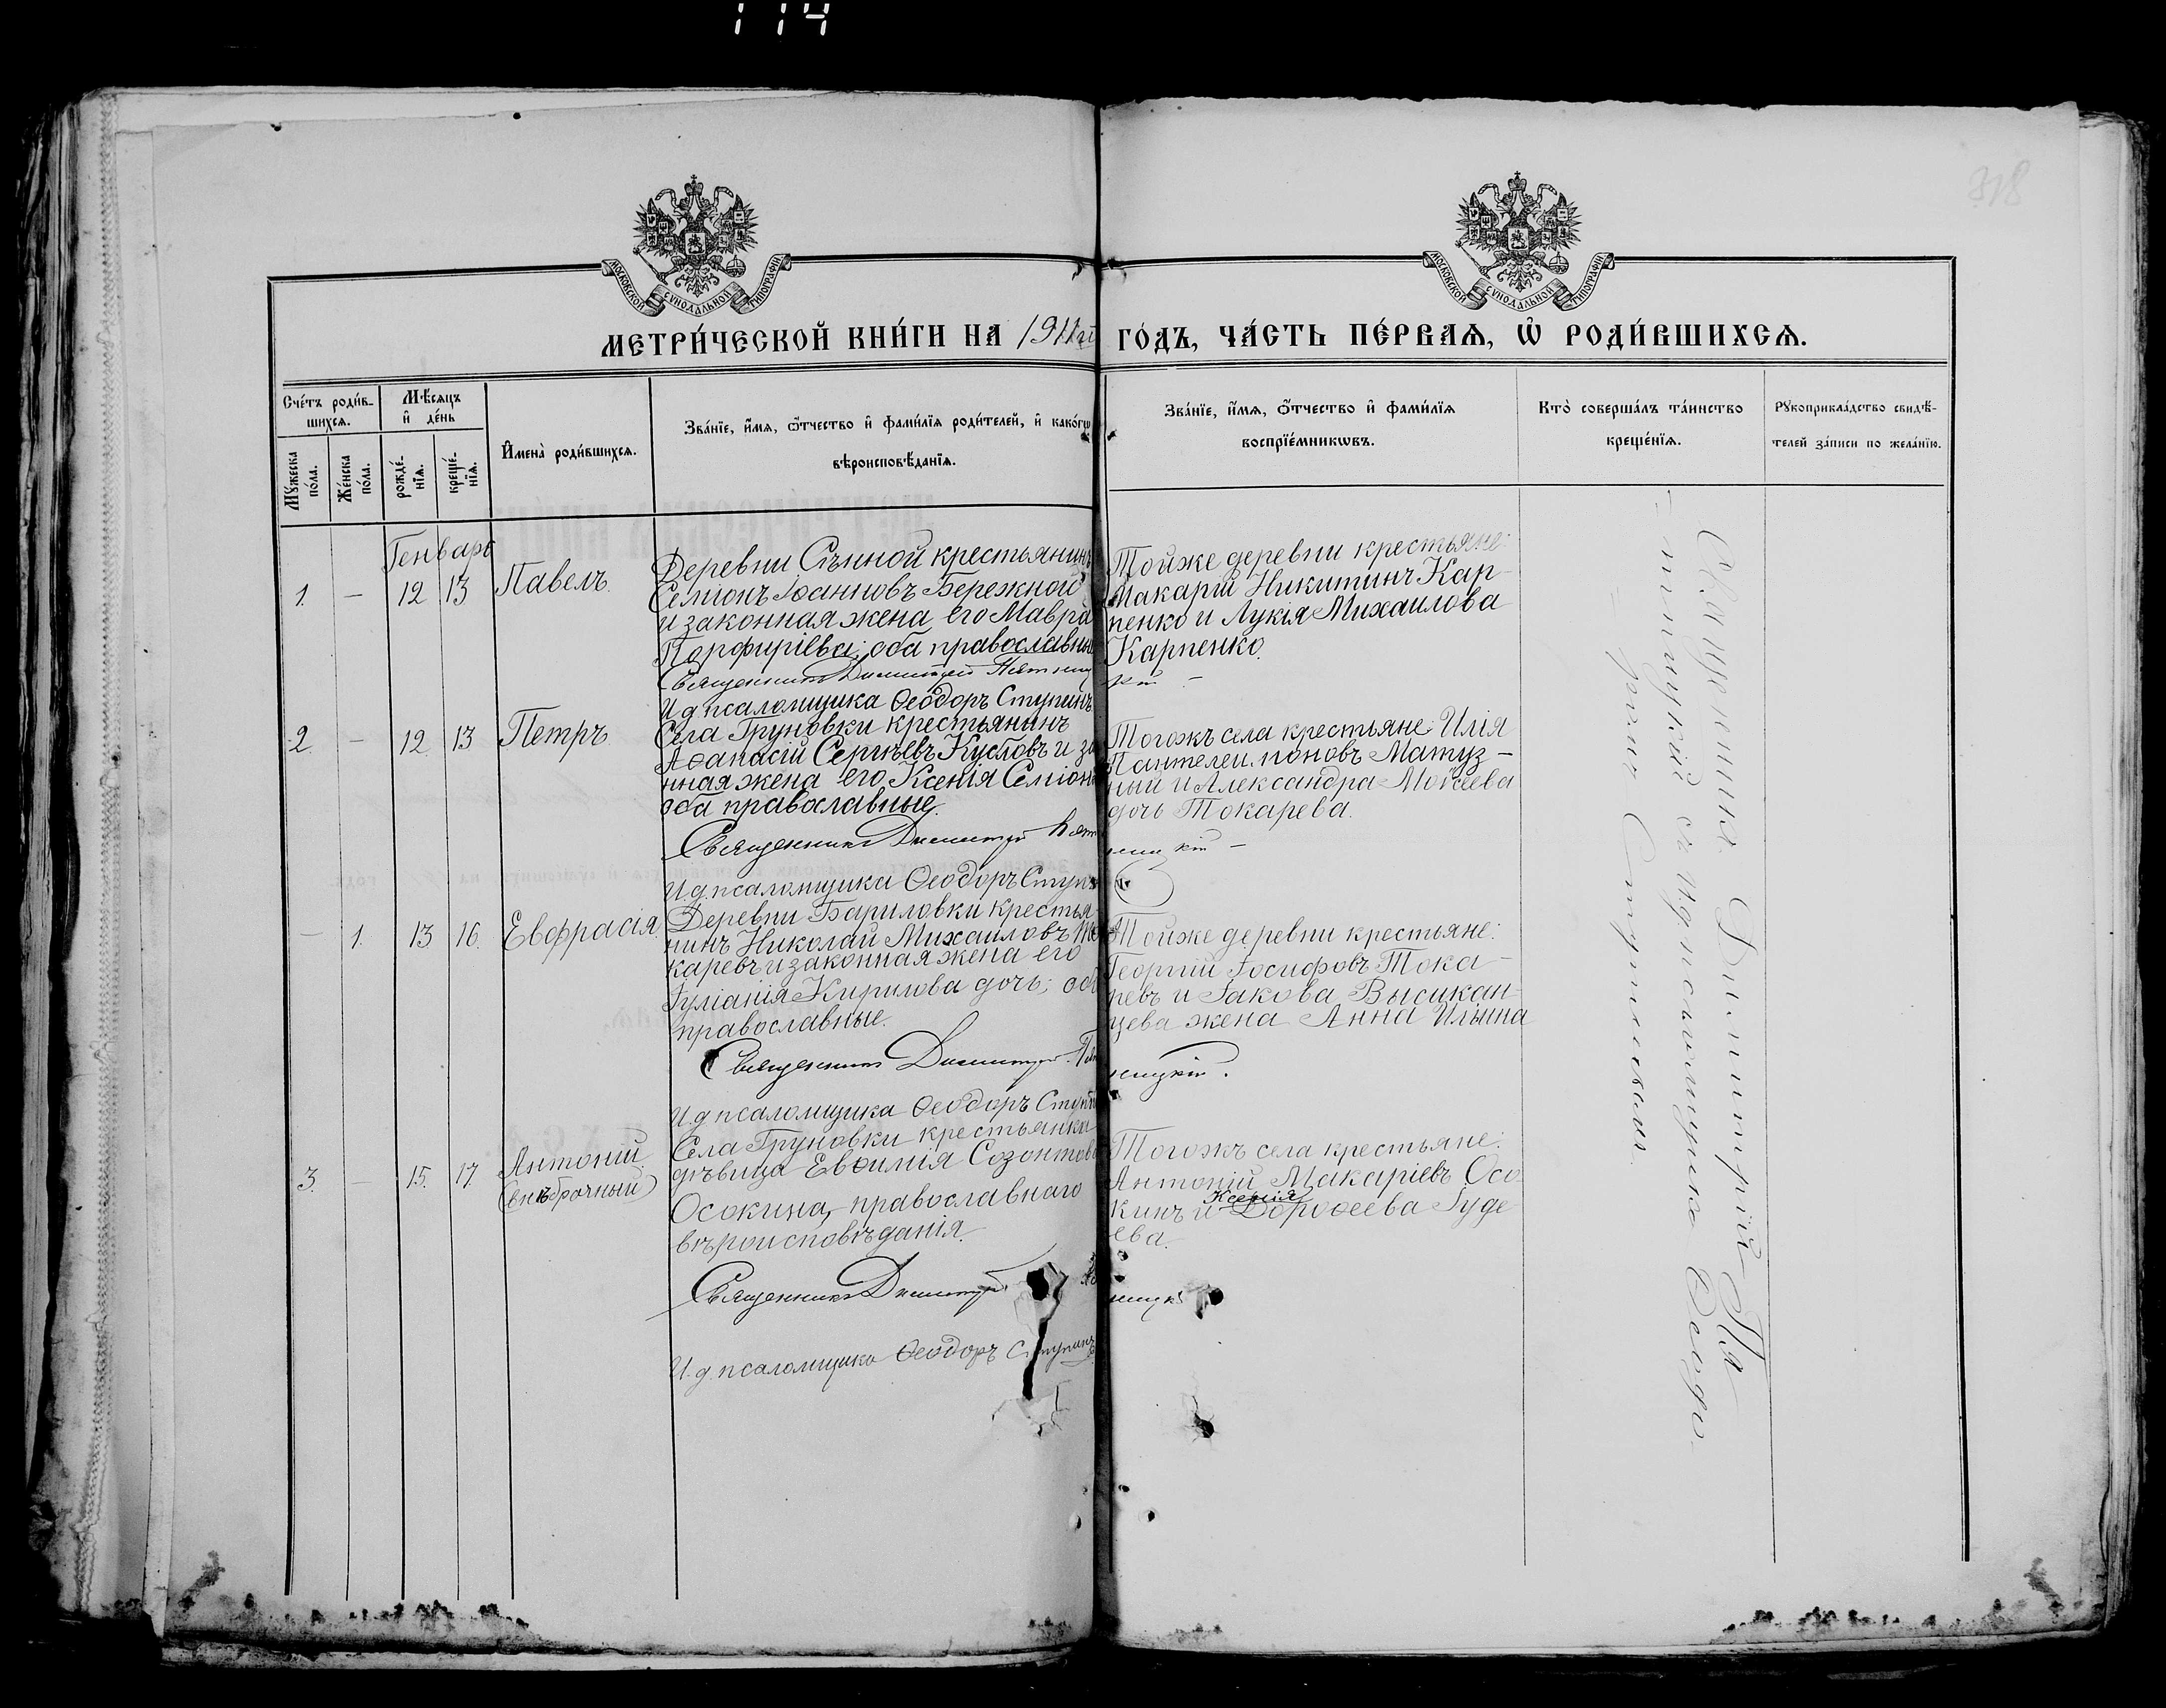 114
318
МОСКОВСКОЙ СУНОДАЛЬНОЙ ТИПОГРАФІИ
МОСКОВСКОЙ СУНОДАЛЬНОЙ ТИПОГРАФІИ
МЕТРИ́ЧЕСКОЙ КНИ́ГИ НА 1911й ГО́ДЪ, ЧА́СТЬ ПЕ́РВАѦ, Ѽ РОДИ́ВШИХСѦ.
Сче́тъ роди́в-
шихсѧ.
Мꙋ́жеска по́ла.
Же́нска по́ла.
Мѣ́сѧцъ
и҆ де́нь
рожде́-нїѧ.
креще́-нїѧ.
И҆мена̀ роди́вшихсѧ.
Зва́нїе, и҆́мѧ, ѻ҆́тчество и҆ фами́лїѧ роди́телей, и҆ како́гѡ
вѣроисповѣ́данїѧ.
Зва́нїе, и҆́мѧ, ѻ҆́тчество и҆ фами́лїѧ
воспрїе́мникѡвъ.
Кто̀ соверша́лъ та́инство
креще́нїѧ.
Рꙋкоприкла́дство свидѣ́-
телей за́писи по жела́нїю.
Генварь
1. — 12 13 Павелъ.
Деревни Сѣнной крестьянинъ
Семіонъ Іоанновъ Бережной
и законная жена его Мавра
Порфиріева; оба православные
Священникъ Димитрій
И.д. псаломщика Ѳеодоръ Ступинъ
Тойже деревни крестьяне:
Макарій Никитинъ Кар-
пенко и Лукія Михаилова
Карпенко.
2. — 12 13 Петръ
Села Груновки крестьянинъ
Аѳанасій Сергѣевъ Кусловъ и за
нная жена его Ксенія Семіон
оба православные.
Священникъ Димитрій
И.д. псаломщика Ѳеодоръ Ступ
Тогожъ села крестьяне: Илія
Пантелеимоновъ Матуз-
ный и Александра Моѵсеева
дочь Токарева.
— 1. 13 16. Евфрасія
Деревни Бариловки крестья
нинъ Николай Михаиловъ То
каревъ и законная жена его
Іуліанія Кирилова дочь; оба
православные.
Священникъ Димитрій
И.д. псаломщика Ѳеодоръ Ступи
Тойже деревни крестьяне:
Георгій Іосифовъ Тока-
ревъ и Іакова Высикан-
цева жена Анна Ильина
3. — 15. 17. Антоній
(внѣбрачный)
Села Груновки крестьянка
дѣвица Евѳимія Созонтова
Осокина, православнаго
вѣроисповѣданія.
Священникъ Димитрій
И.д. псаломщика Ѳеодоръ Ступинъ
Тогожъ села крестьяне:
Антоній Макаріевъ Осо-
кинъ и Ксенія Дороѳеева Іуде
ева.
Священникъ Димитрій Пя-
тницкій с И.д. псаломщика Ѳеодо-
ромъ Ступинымъ.